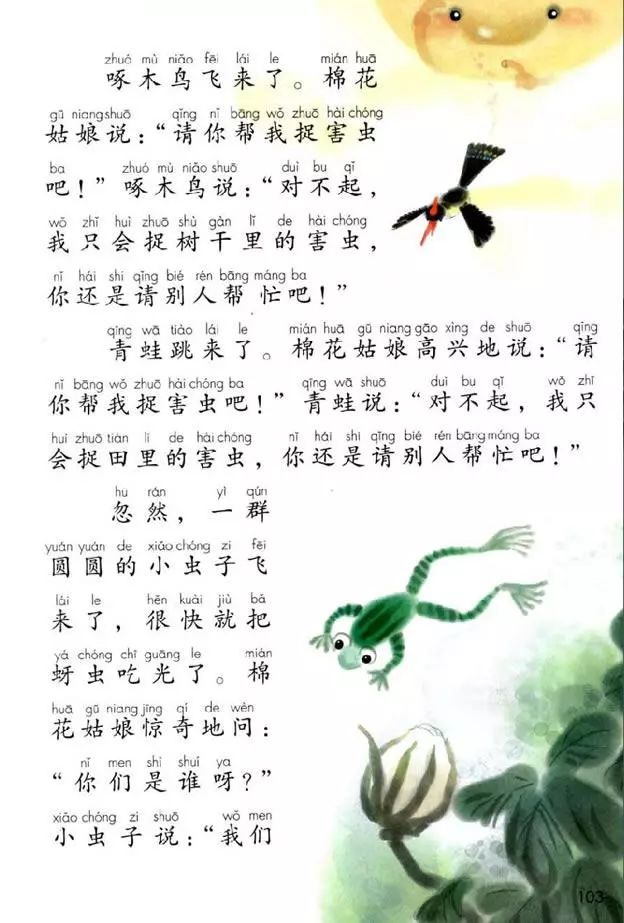 zhuó mù niǎo fēi lái le mián huā
啄木鸟飞来了。棉花
gū niang shuō qǐng nǐ bāng wǒ zhuō hài chóng
姑娘说：“请你帮我捉害虫
ba zhuó mù niǎo shuō duì bu qǐ
吧！”啄木鸟说：“对不起，
wǒ zhǐ huì zhuō shù gàn lǐ de hài chóng
我只会捉树干里的害虫，
nǐ hái shi qǐng bié rén bāng máng ba
你还是请别人帮忙吧！”
qīng wā tiào lái le mián huā gū niang gāo xìng de shuō qǐng
青蛙跳来了。棉花姑娘高兴地说：“请
nǐ bāng wǒ zhuō hài chóng ba qīng wā shuō duì bu qǐ wǒ zhǐ
你帮我捉害虫吧！”青蛙说：“对不起，我只
huì zhuō tián lǐ de hài chóng nǐ hái shi qǐng bié rén bāng máng ba
会捉田里的害虫，你还是请别人帮忙吧！”
hū rán yì qún
忽然，一群
yuán yuán de xiǎo chóng zi fēi
圆圆的小虫子飞
lái le hěn kuài jiù bǎ
来了，很快就把
yá chóng chī guāng le mián
蚜虫吃光了。棉
huā gū niang jīng qí de wèn
花姑娘惊奇地问：
nǐ men shì shuí ya
“你们是谁呀？”
xiǎo chóng zi shuō wǒ men
小虫子说：“我们
103